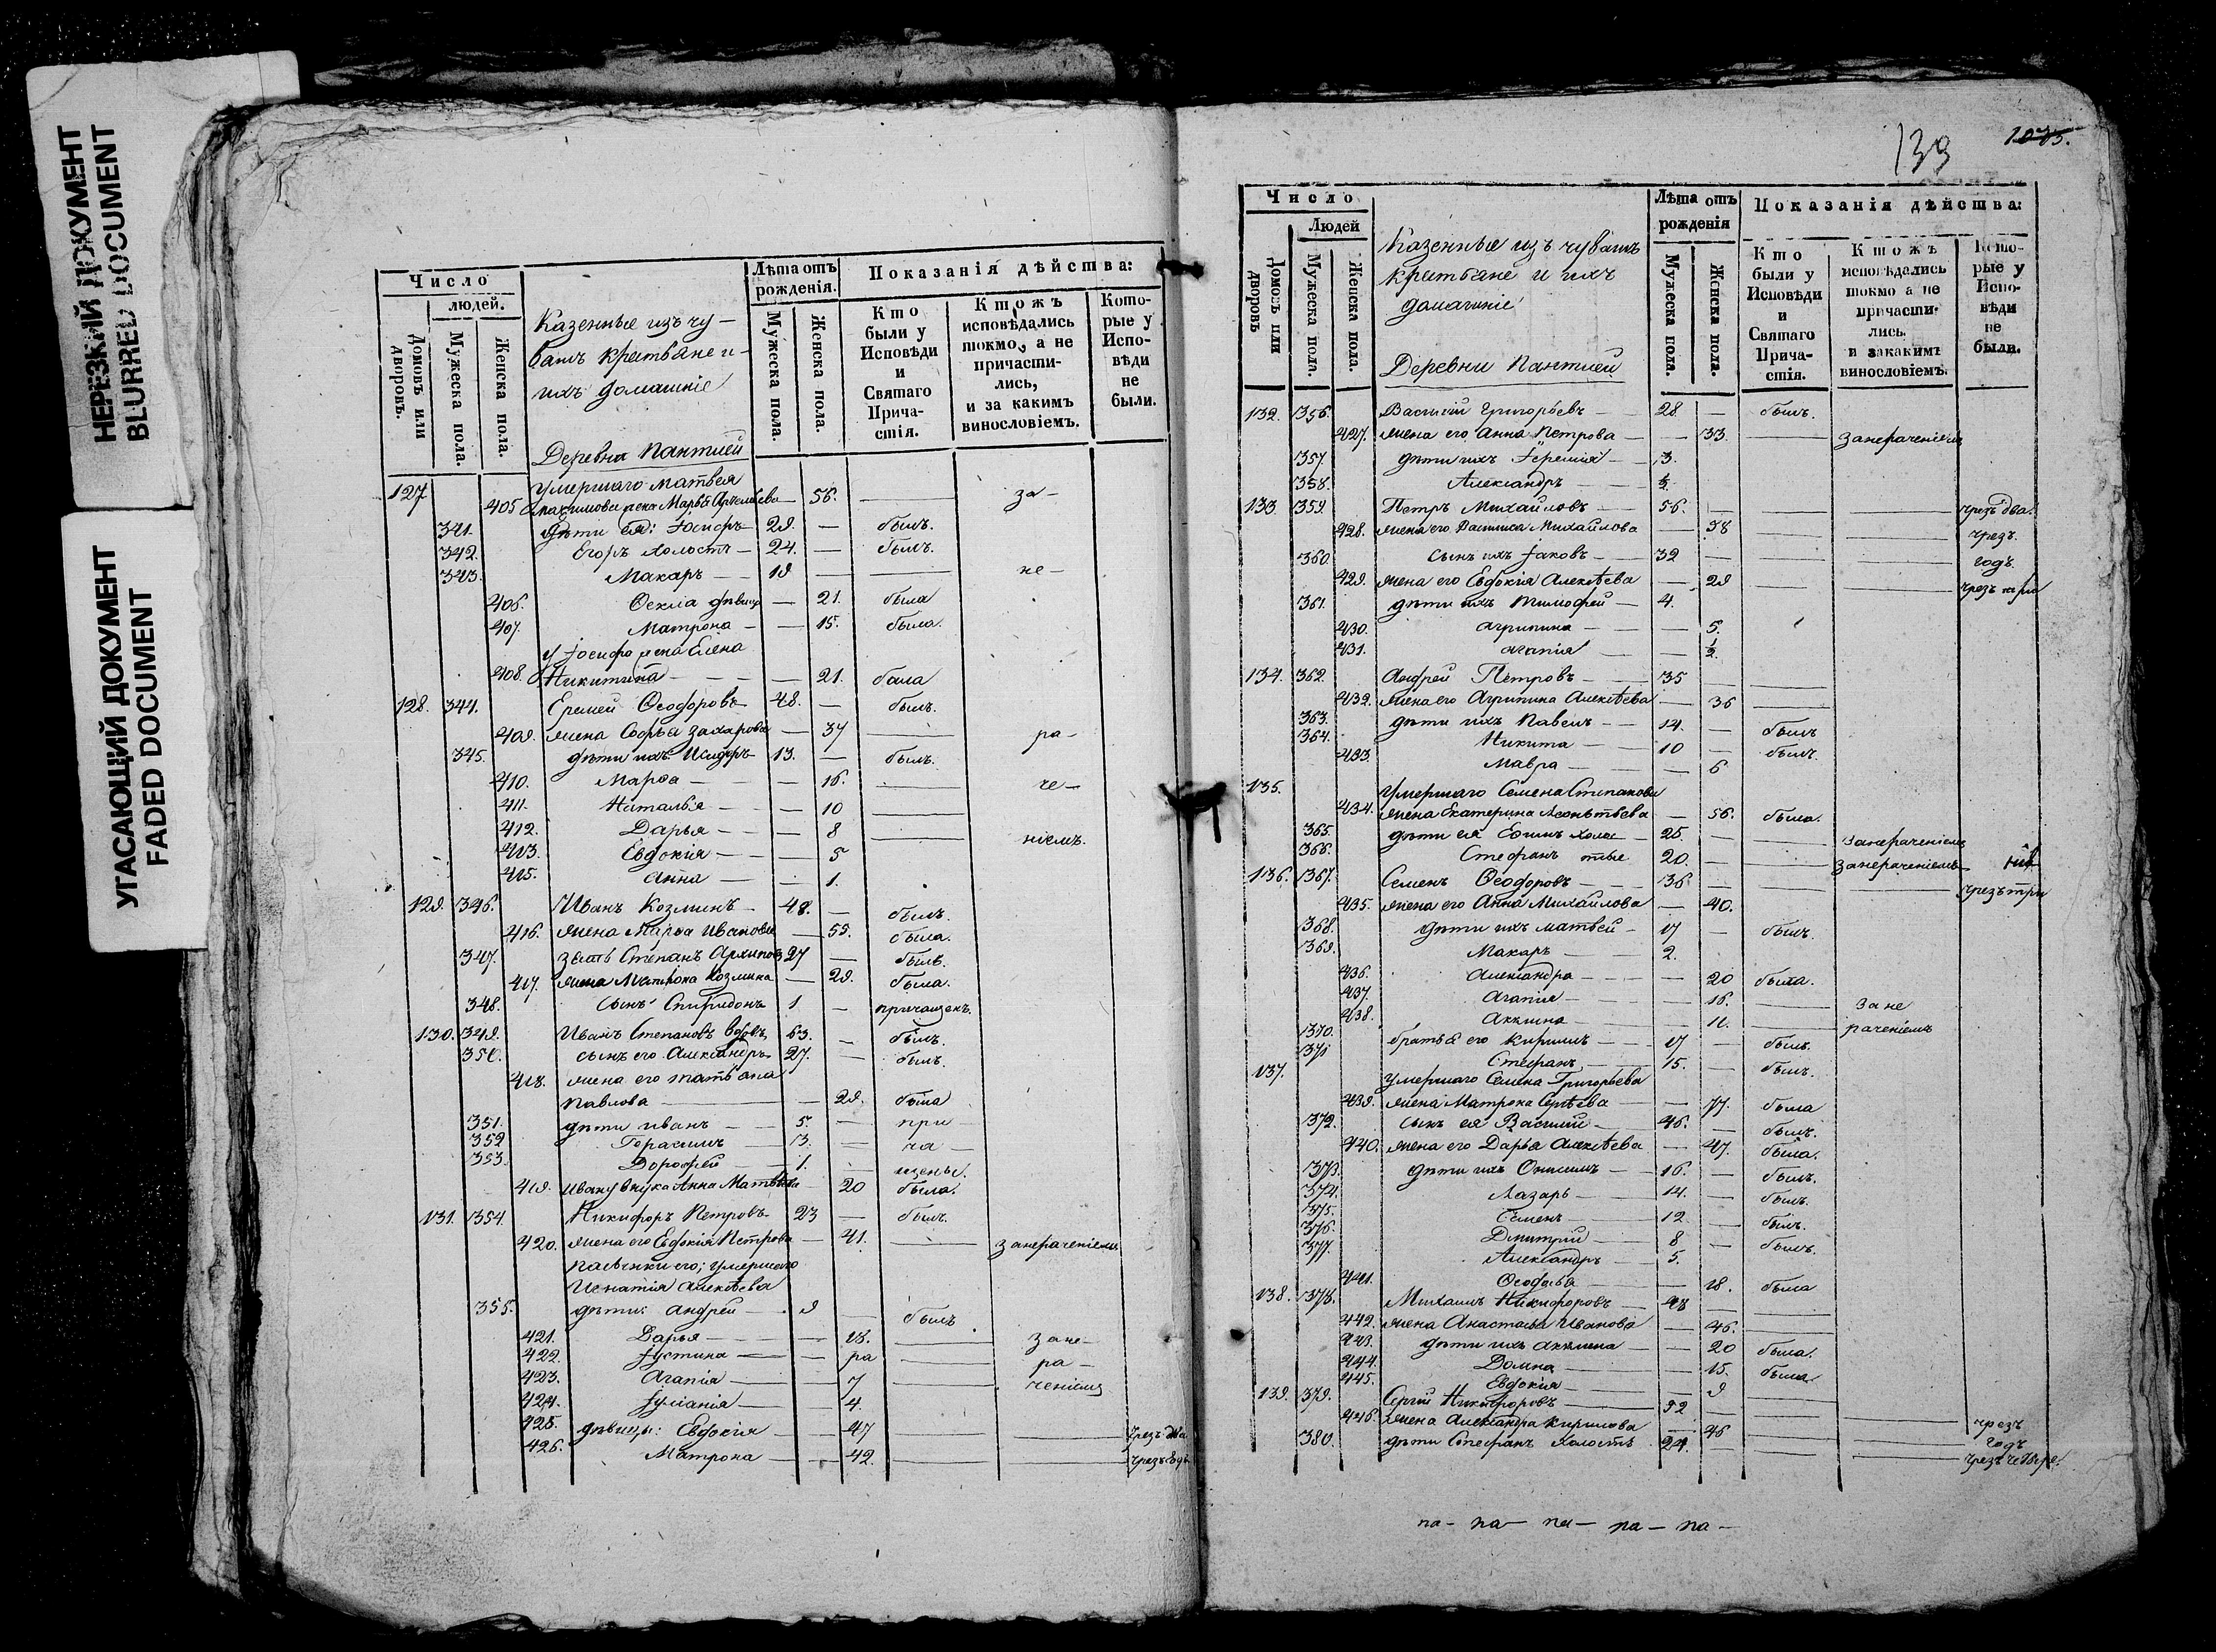 НЕРЕЗКИЙ ДОКУМЕНТ
BLURRED DOCUMENT
УГАСАЮЩИЙ ДОКУМЕНТ
FADED DOCUMENT
Число
людей.
Домовъ или дворовъ.
Мужеска пола.
Женска пола.
Казенные изъ чу-
вашъ крестьяне и
ихъ домашніе
Деревни Пантией
Лѣта отъ рожденія.
Мужеска пола.
Женска пола.
Показанія дѣйства:
Кто были у Исповѣди и Святаго Прича-стія.
Ктожъ исповѣдались токмо, а не причасти-лись, и за какимъ винословіемъ.
Кото-рые у Испо-вѣди не были.
127 Умершаго Матвея
405 жена Марѳа 56. — за-
341. дѣти ея: Іосифъ 29. — былъ.
342. Егоръ холостъ — 24. — былъ.
343. Макаръ — 19 — — не-
406. Ѳекла — 21. была
407. Матрона — — 15. была.
у Іосифа жена Елена
408. Никитина — — 21. была
128. 344. Еремей Ѳеодоровъ 48. — былъ.
409. жена Софья Захарова — 37 — ра-
345. дѣти ихъ Исидоръ 13. — былъ.
410. Марѳа — — 16. — че-
411. Наталья — — 10 —
412. Дарья — — 8 — ніемъ.
413. Евдокія — — 5
415. Анна — — 1.
129. 346. Иванъ Козминъ — 48. — былъ.
416. жена Марѳа Иванова — 55. была.
347. зять Степанъ Архиповъ 27 — былъ.
417. жена Матрона Козмина — 29. была.
348. сынъ Спиридонъ 1. — причащенъ.
130. 349. Иванъ Степановъ вдовъ 63. — былъ.
350. сынъ его Александръ 27. — былъ.
418. жена его Татьяна
Павлова — — 29. была
351. дѣти Иванъ — 5. — при-
352 Герасимъ — 3. — ча-
353. Дорофей — 1. — щены.
419. Ивану внука Анна Матвѣева — 20 была.
131. 354. Никифоръ Петровъ 23 — былъ.
420. жена его Евдокія Петрова — 41. — занераченіемъ
пасынки его; умершаго
Игнатія Алексѣева
355. дѣти: Андрей — 9 — былъ
421. Дарья — — 18. — зане-
422. Іустина — — — ра-
423. Агапія — — 7 — ченіемъ
424. Іуліанія — — 4.
425. дѣвицы: Евдокія — 47 — чрезъ два
426. Матрона — — 42. — чрезъ
139
1035.
Число
Людей
Домовъ или дворовъ
Мужеска пола.
Женска пола.
Казенные изъ чувашъ
крестьяне и ихъ
домашніе
Деревни Пантией
Лѣта отъ рожденія
Мужеска пола.
Женска пола.
Показанія дѣйства:
Кто были у Исповѣди и Святаго Прича-стія.
Ктожъ исповѣдались токмо а не причасти-лись. и закакимъ винословіемъ.
Кото-рые у Испо-вѣди не были.
132. 356. Василій Григорьевъ — 28. — былъ.
427. жена его Анна Петрова — — 33. — занераченіемъ
357. дѣти ихъ Іеремія — 3.
358. Александръ —
133. 359. Петръ Михайловъ — 56. — чрезъ два.
428. жена его Василиса Михайлова — 58 — чрезъ.
360. сынъ ихъ Іаковъ — 32 — годъ.
429. жена его Евдокія Алексѣева — 29 — чрезъ три
361. дѣти ихъ Тимофей — 4.
430. Агрипина — — 5.
431. Агапія — — ½.
134. 362. Андрей Петровъ — 35 —
432. жена его Агрипина Алексѣева — 36 —
363. дѣти ихъ Павелъ — 14. — былъ
364. Никита — 10 — былъ.
433. Мавра — — 6
135. Умершаго Семена Степанова
434. жена Екатерина Леонтьева — 56. была.
365. дѣти ея Ефимъ холос — 25. — занераченіемъ
366. Стефанъ 20. — занераченіемъ
136. 367. Семенъ Ѳеодоровъ — 36 — чрезъ три
435. жена его Анна Михайлова — 40.
368. дѣти ихъ Матвей — 17 — былъ.
369. Макаръ — 2.
436. Александра — — 20 была.
437. Агапія — — 16. — зане
438. Акилина — — 11. — раченіемъ
370. братья его Кирилъ — 17 — былъ.
371 Стефанъ — 15. — былъ.
137. Умершаго Семена Григорьева
439. жена Матрона Сергѣева — — 77. была
372. сынъ ея Василій — 46. — былъ.
440. жена его Дарья Алексѣева — 47. была.
373. дѣти ихъ Онисимъ — 16. — былъ.
374. Лазарь — 14. — былъ.
375. Семенъ — 12. — былъ.
376. Дмитрій — 8 — былъ.
377. Александръ — 5.
441. Ѳеодосья — — 18. была
138. 378. Михаилъ Никифоровъ — 48 —
442. жена Анастасья Иванова — 46. —
443. дѣти ихъ Акилина — — 20 была.
444. Домна — — 15. была
445. Евдокія — — 9
139. 379. Сергій Никифоровъ — 52 — чрезъ
446. жена Александра Кирилова — 46 — годъ
380. дѣти Стефанъ холостъ — 24. — чрезъ четыре.
па- па- па- па- па-